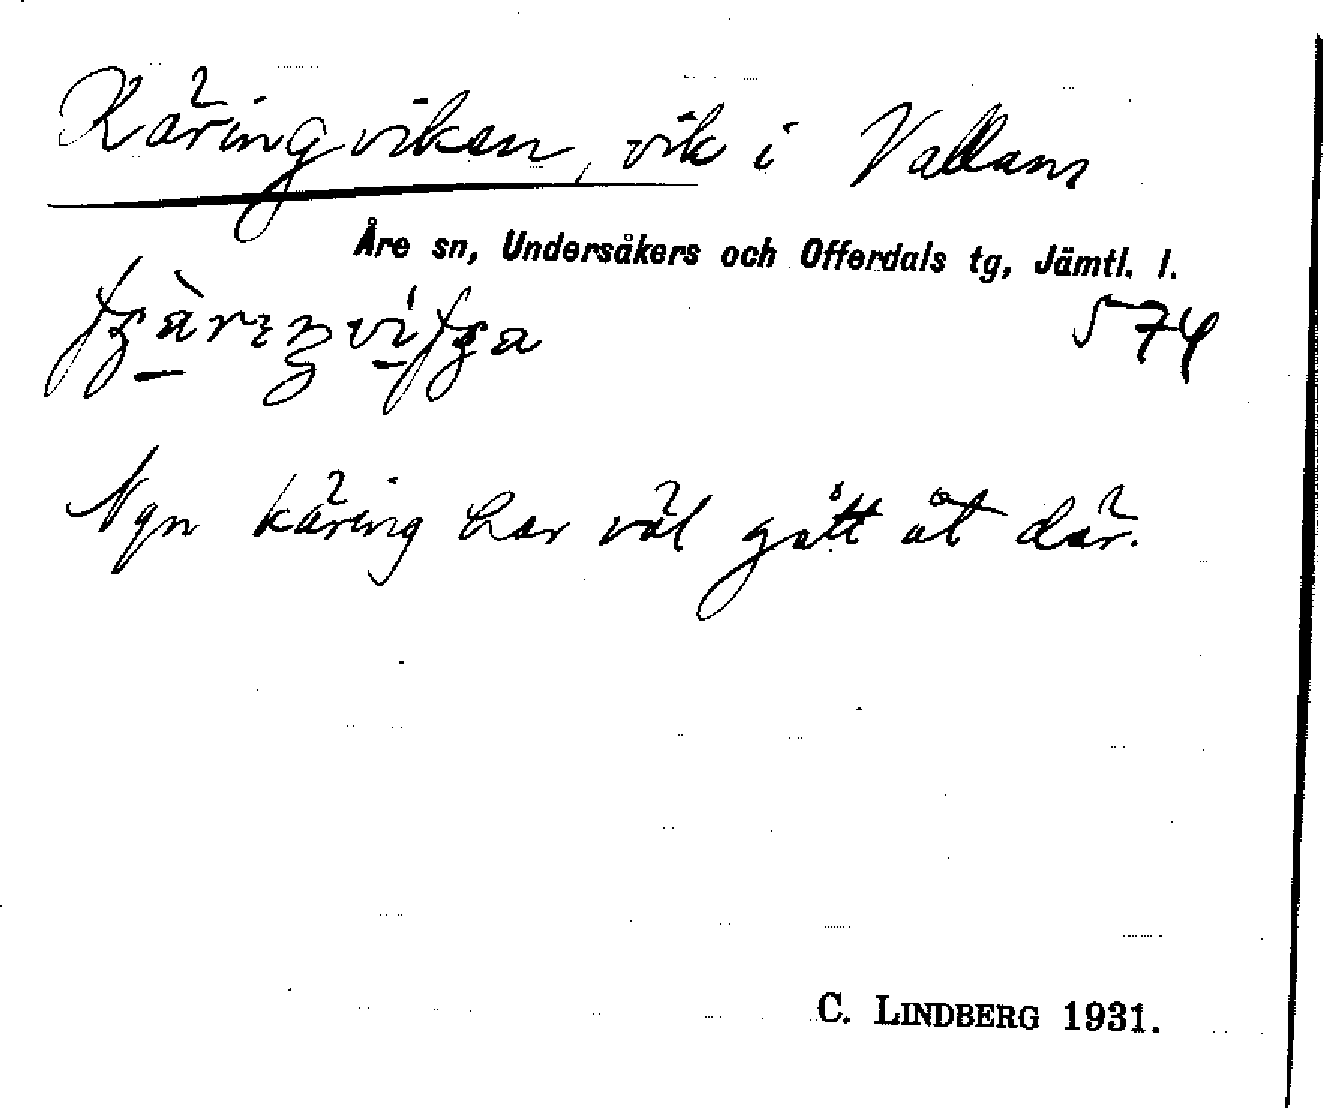 Käringviken, vik i Vallan
Åre sn, Undersåkers och Offerdals tg, Jämtl. l.
574
Ngn käring har väl gått åt där.
C. LINDBERG 1931.